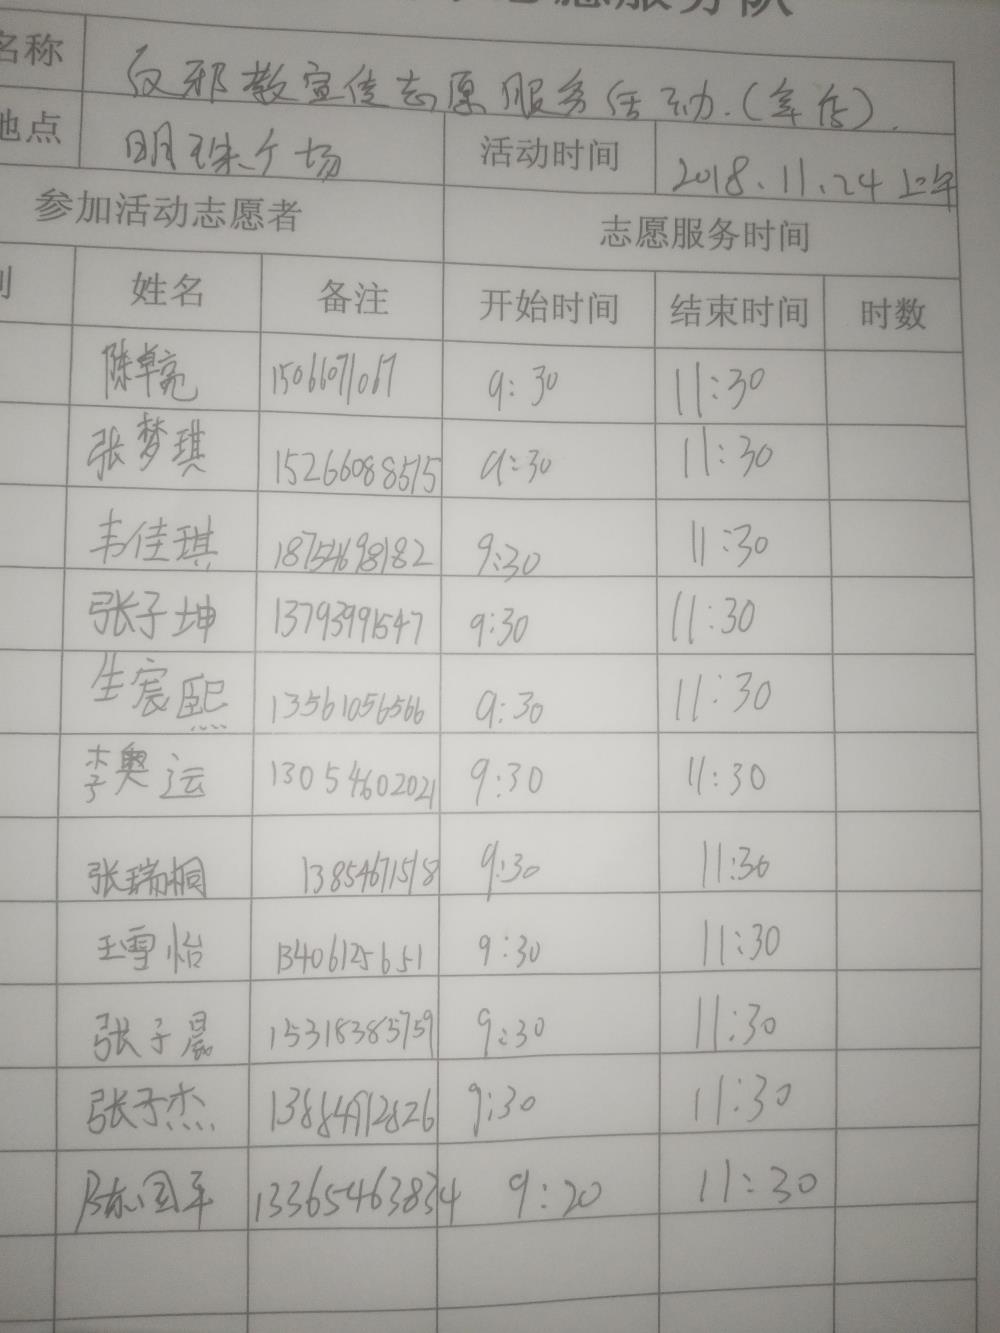 志愿服务队
名称 反邪教宣传志愿服务活动.(年后).
地点 明珠广场 活动时间 2018.11.24上午
参加活动志愿者 志愿服务时间
别 姓名 备注 开始时间 结束时间 时数
陈卓亮 15066071067 9:30 11:30
张梦琪 15266088515 9:30 11:30
韦佳琪 18754698182 9:30 11:30
张子坤 13793991547 9:30 11:30
生宸熙 13561056566 9:30 11:30
李奥运 13054602021 9:30 11:30
张瑞桐 13854671518 9:30 11:30
王雪怡 13406125651 9:30 11:30
张子晨 15318385759 9:30 11:30
张子杰 13884912826 9:30 11:30
陈国平 13365463834 9:20 11:30